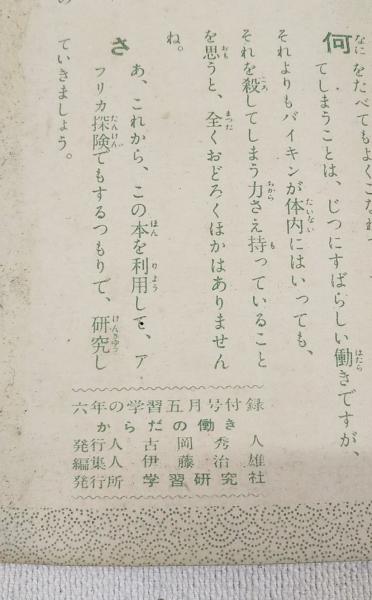 何をたべてもよくこなれ
てしまうことは、じつにすばらしい働きですが、
それよりもバイキンが体内にはいっても、
それを殺してしまう力さえ持っていること
を思うと、全くおどろくほかはありません
ね。
さあ、これから、この本を利用して、ア
フリカ探険でもするつもりで、研究し
ていきましょう。
の
六年の学習五月号付録
からだの働き
発行人 古岡秀人
編集人 伊藤治雄
発行所 学習研究社